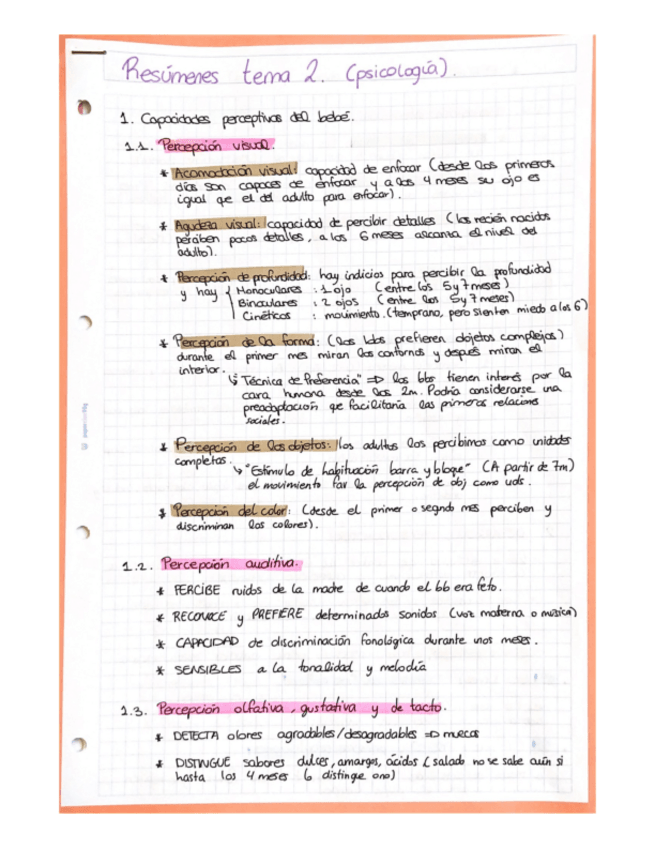 Resúmenes tema 2. (psicología).
1. Capacidades perceptivas del bebé.
1.1. Percepción visual.
* Acomodación visual: capacidad de enfocar (desde los primeros
días son capaces de enfocar y a los 4 meses su ojo es
igual que el del adulto para enfocar).
* Agudeza visual: capacidad de percibir detalles (los recién nacidos
perciben pocos detalles, a los 6 meses alcanza el nivel del
adulto).
* Percepción de profundidad: hay indicios para percibir la profundidad
y hay { Monoculares : 1 ojo (entre los 5 y 7 meses)
Binoculares : 2 ojos (entre los 5 y 7 meses)
Cinéticos : movimiento. (temprano, pero sienten miedo a los 6)
* Percepción de la forma: (los bbs prefieren objetos complejos)
durante el primer mes miran los contornos y después miran el
interior.
↳ "Técnica de Preferencia" => los bbs tienen interés por la
cara humana desde los 2m. Podría considerarse una
preadaptación qe facilitaría las primeras relacions
sociales.
* Percepción de los objetos: los adultos los percibimos como unidades
completas.
↳ "Estímulo de habituación barra y bloque" (A partir de 7m)
el movimiento fav la percepción de obj como uds.
* Percepción del color: (desde el primer o segndo mes perciben y
discriminan los colores).
1.2. Percepción auditiva.
* PERCIBE ruidos de la madre de cuando el bb era feto.
* RECONOCE y PREFIERE determinados sonidos (voz materna o música)
* CAPACIDAD de discriminación fonológica durante unos meses.
* SENSIBLES a la tonalidad y melodía
1.3. Percepción olfativa, gustativa y de tacto.
* DETECTA olores agradables/desagradables => muecas
* DISTINGUE sabores dulces, amargos, ácidos (salado no se sabe aún si
hasta los 4 meses lo distingue o no)